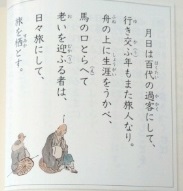 月日は百代の過客にして、
行き交ふ年もまた旅人なり。
舟の上に生涯をうかべ、
馬の口とらへて
老いを迎ふる者は、
日々旅にして、
旅を栖とす。